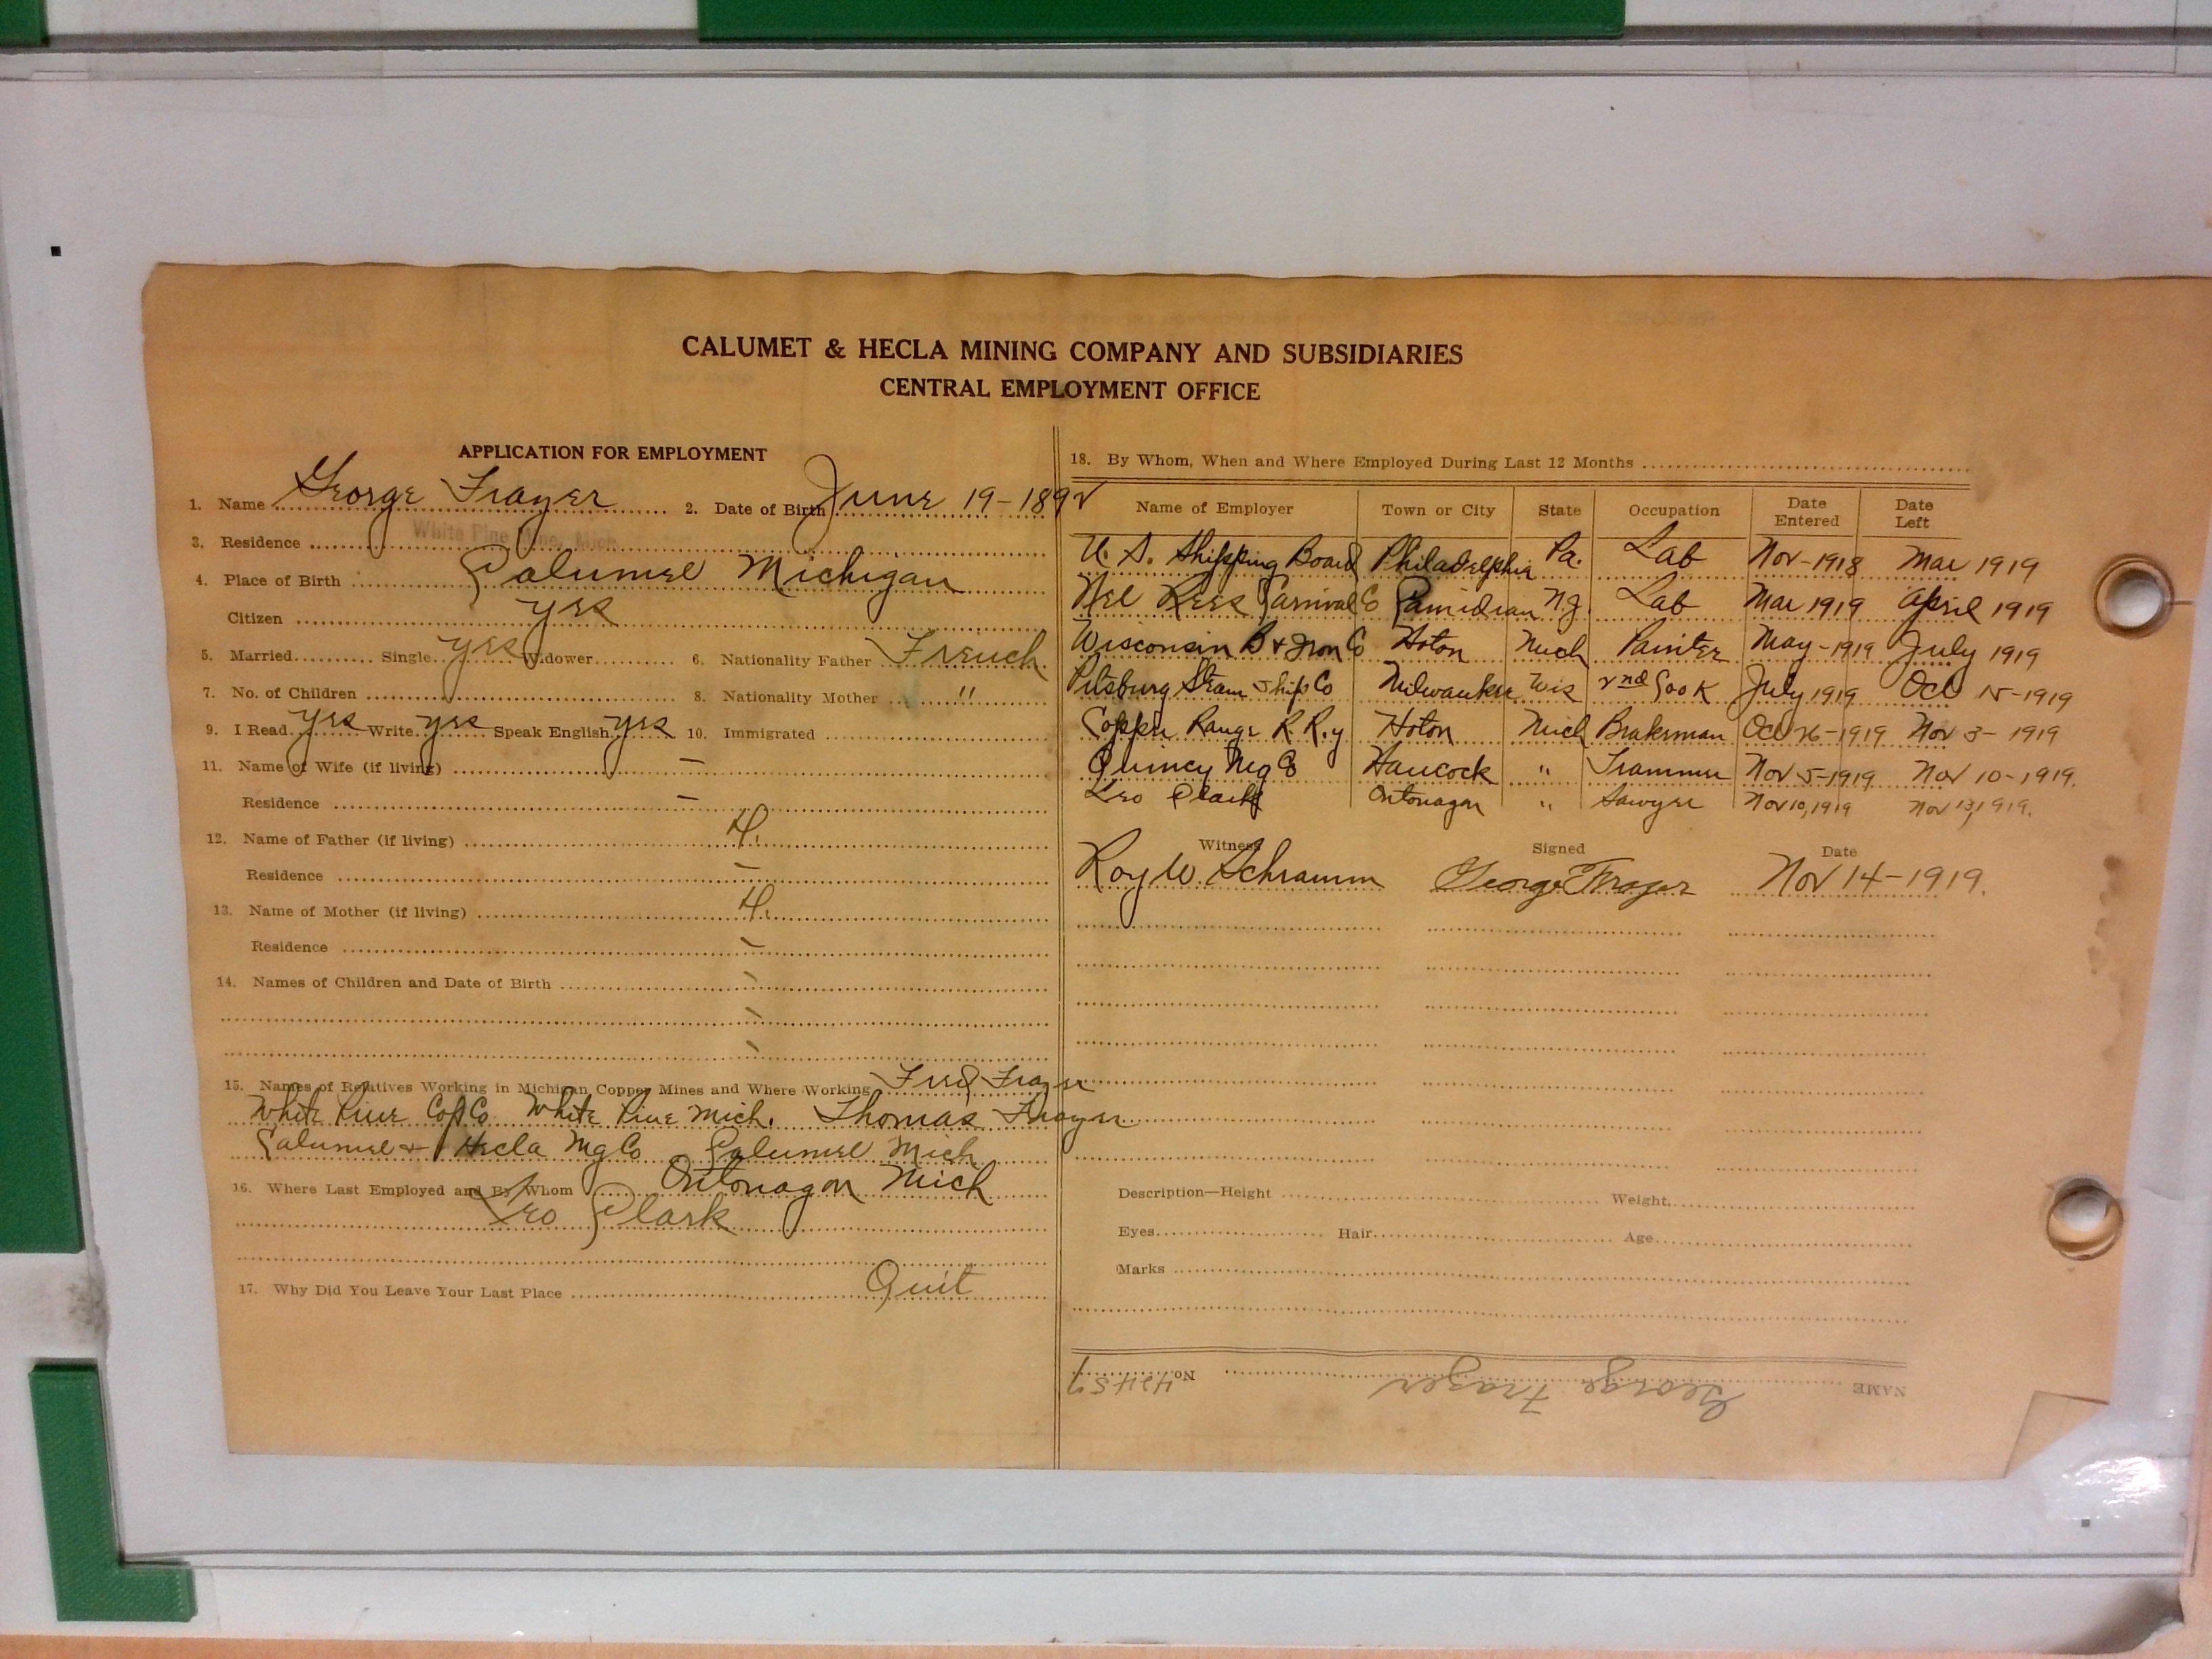 CALUMET & HECLA MINING COMPANY AND SUBSIDIARIES
CENTRAL EMPLOYMENT OFFICE
APPLICATION FOR EMPLOYMENT
1. Name George Frazer 2. Date of Birth June 19-1892
3. Residence White Pine Mine, Mich.
4. Place of Birth Calumet Michigan
Citizen yes
5. Married Single yes Widower 6. Nationality Father French
7. No. of Children 8. Nationality Mother "
9. I Read yes Write yes Speak English yes 10. Immigrated
11. Name of Wife (if living) -
Residence -
12. Name of Father (if living) D.
Residence -
13. Name of Mother (if living) D.
Residence -
14. Names of Children and Date of Birth -
-
-
15. Names of Relatives Working in Michigan Copper Mines and Where Working Fred Frazer
White Pine Cop Co White Pine Mich. Thomas Frazer
Calumet & Hecla Mg Co Calumet Mich
16. Where Last Employed and By Whom Ontonagon Mich
Leo Clark
17. Why Did You Leave Your Last Place Quit
18. By Whom, When and Where Employed During Last 12 Months
Name of Employer Town or City State Occupation Date Entered Date Left
U. S. Shipping Board Philadelphia Pa. Lab Nov-1918 Mar 1919
Carnival Co N.J. Lab Mar 1919 April 1919
Wisconsin B & Iron Co Hoton Mich Painter May-1919 July 1919
Pitsburg Steam Ship Co Milwaukee Wis 2nd Cook July 1919 Oct 15-1919
Copper Range R. R.y Hoton Mich Brakeman Oct 26-1919 Nov 3-1919
Quincy Mg Co Hancock " Trammer Nov 5-1919 Nov 10-1919.
Leo Clark Ontonagon " Sawyer Nov 10, 1919 Nov 13, 1919.
Witness Signed Date
Roy W. Schramm George Frazer Nov 14-1919.
Description—Height Weight
Eyes Hair Age
Marks
NAME George Frazer No. 42457